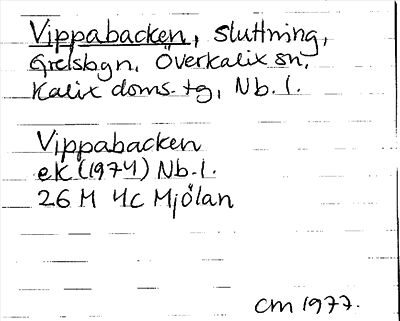 Vippabacken, sluttning,
Grelsbgn, Överkalix sn,
Kalix doms. tg, Nb. l.
Vippabacken
ek (1974) Nb. l.
26 M 4c Mjölan
CM 1977.